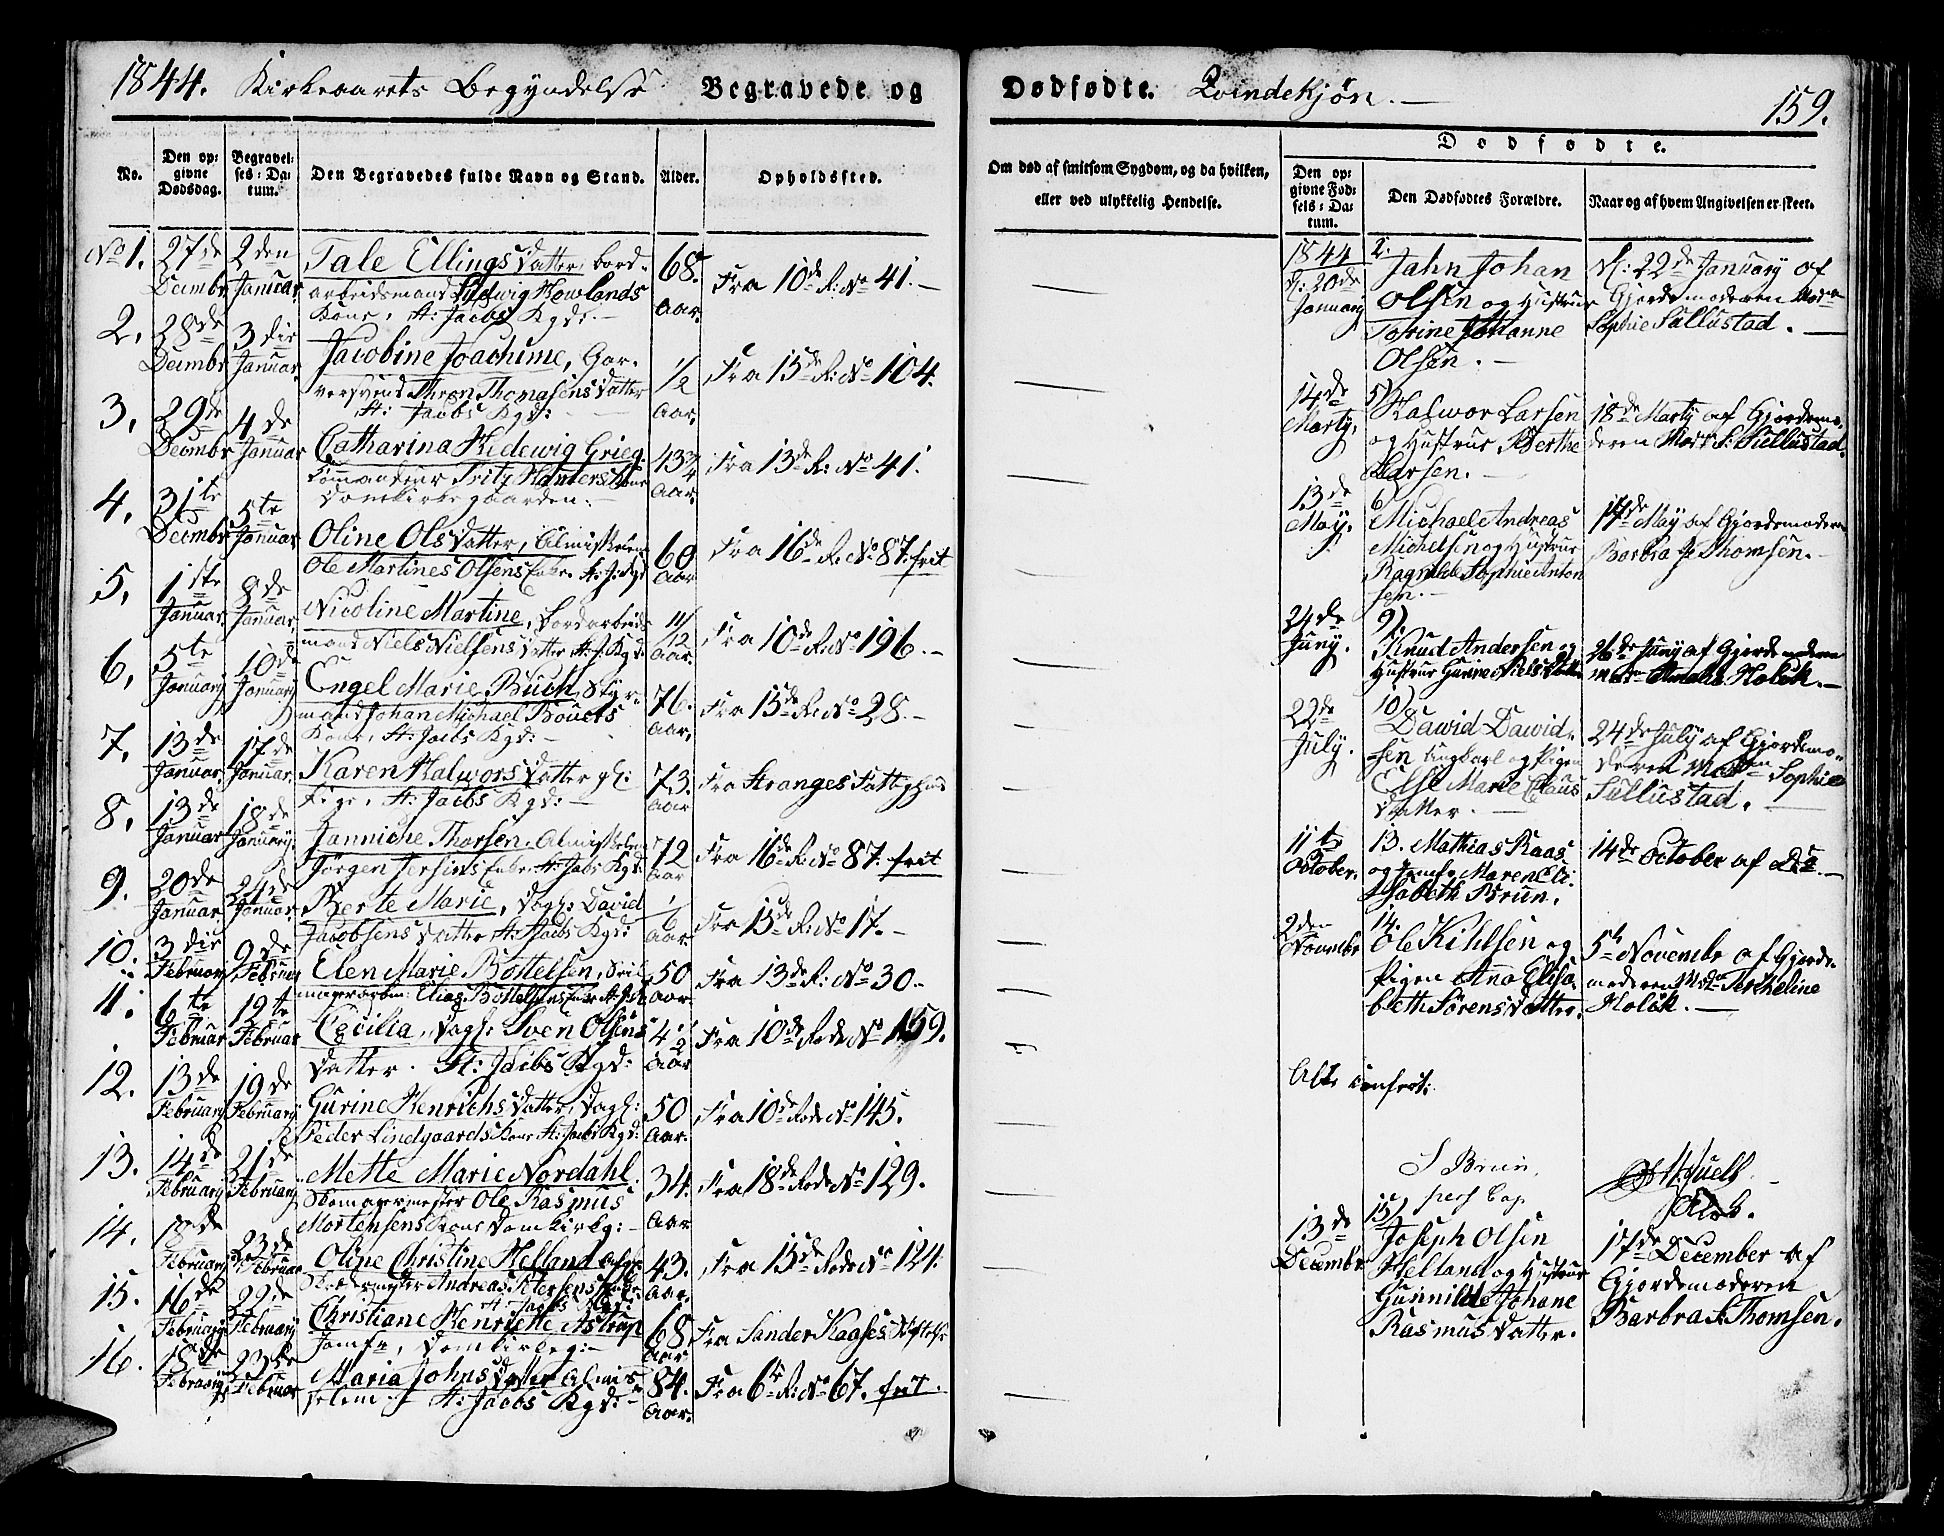 1844. Kirkeaarets Begyndelse Begravede og Dødfødte. Qvindekjøn. 159.
No. Den opgivne Dødsdag. Begravelses-Datum. Den Begravedes fulde Navn og Stand. Alder. Opholdssted.
No 1. 27de Decembr 2den Januar Tale Ellings Datter, bord-
arbeidsmand Ludwig Howlands
Kone, St: Jacobs Kgd: 68 Aar. Fra 10de R: No 41.
2, 28de Decembr 3die Januar Jacobine Joachime, Gar-
versvend Thron Thomasens Datter
St: Jacobs Kgd: 1/2 Aar. Fra 15de R: No 104.
3, 29de Decembr 4de Januar Catharina Hedewig Grieg
Commandeur Fritz Hanters Kone
Domkirkegaarden. 43 3/4 Aar. Fra 13de R: No 41.
4, 31te Decembr 5te Januar Oline Ols Datter,
Ole Martines Olsens Enke. St: J: Kgd 60 Aar Fra 16de R: No 87. frit
5, 1ste Januar 8de Januar, Nicoline Martine, Bordarbeids
mand Niels Nielsens Datter St: J: Kgd 11/12 Aar. Fra 10de R: No 196.
6, 5te January 10de January Engel Marie Buch, Styr-
mand Johan Michael Bouers
Kone, St: Jacobs Kgd: 76. Aar, Fra 15de R: No 28.
7, 13de Januar, 17de Januar, Karen Halvors Datter
Pige, St: Jacobs Kgd: 73. Aar Fra Stranges Fattighuus
8, 13de Januar 18de January. Janniche Thorsen,
Jørgen Jersins Enke. St: Jacobs Kgd: 72 Aar Fra 16de R: No 87. frit
9. 20de Januar 24de Januar Berte Marie, Dagl: David
Jacobsens Datter St: Jacobs Kgd: 1/6 Aar Fra 15de R: No 17.
10. 3die Februar 9de Februar Elen Marie Bottelsen,
Elias Bottelsens Enke St: Jcb 50 Aar. Fra 13de R: No 30.
11. 6te Februar 12te Februar Cecilia, Dagl: Sven Olsens
Datter. St: Jacobs Kgd: 4 1/2 Aar Fra 10de Rode No 159.
12. 13de February 19de February Gurine Henrichs Datter, Dagl:
Peder Lindgaards Kone St: Jacobs Kgd: 50 Aar. Fra 10de Rode No 145.
13. 14de February 21de February Mette Marie Nordahl
Skomagermester Ole Rasmus
Mortensens Kone Domkirkg: 34. Aar Fra 18de Rode No 129.
14. 18de February 23de Februar Oline Christine Helland
Andreas
St: Jacobs Kgd: 43. Aar. Fra 15de Rode No 124.
15. 16de February 22de February Christiane Henriette Astrup
Jomfr, Domkirkeg: 68 Aar Fra Sander Kaases Stiftelse
16. 18de February 23de Februar Maria Johns Datter Almis
selem St: Jacobs Kgd: 84. Aar. Fra 6te R: No 67. frit.
Om død af smitsom Sygdom, og da hvilken,
eller ved ulykkelig Hendelse.
Dødfødte.
Den opgivne Fødsels-Datum. Den Dødfødtes Forældre. Naar og af hvem Angivelsen er skeet.
1844 d: 20de January 2. Jahn Johan
Olsen og Hustrue
Tosrine Johanne
Olsen. d: 22de January af
Gjordemoderen Mad.
Sophie Sullustad.
14de Marty, 5) Halvor Larsen
og Hustrue Berthe
Larsen. 18de Marty af Gjordemo-
deren Mad: S. Sullustad.
13de May. 6) Michael Andreas
Michelsen og Hustrue
Ragnilde Sophie Anton
sen. 17de May af Gjordemoderen
Barbra J. Thomsen.
24de Juny. 9) Knud Andersen og
Hustrue Gurine Niels Datter 26de Juny af Gjordemoderen
Holck.
22de July. 10) Dawid Dawid-
sen ungkarl og Pigen
Else Marie Claus
Datter. 24de July af Gjordemo-
deren Madm Sophie
Sullustad.
11te October. 13. Mathias Kaas
og Jomfr Maren Eli-
sabeth Brun. 14de October af Do
2den Novembr 14. Ole Kihlsen og
Pigen Anna Elisa-
beth Sørens Datter. 5te Novembr af Gjorde-
moderen
Holck.
Alt confert:
S Brun,
pers Cap
Klok.
13de December 15) Joseph Olsen
Helland og Hustrue
Gunnilde Johane
Rasmus Datter. 17de December af
Gjordemoderen
Barbra S. Thomsen.